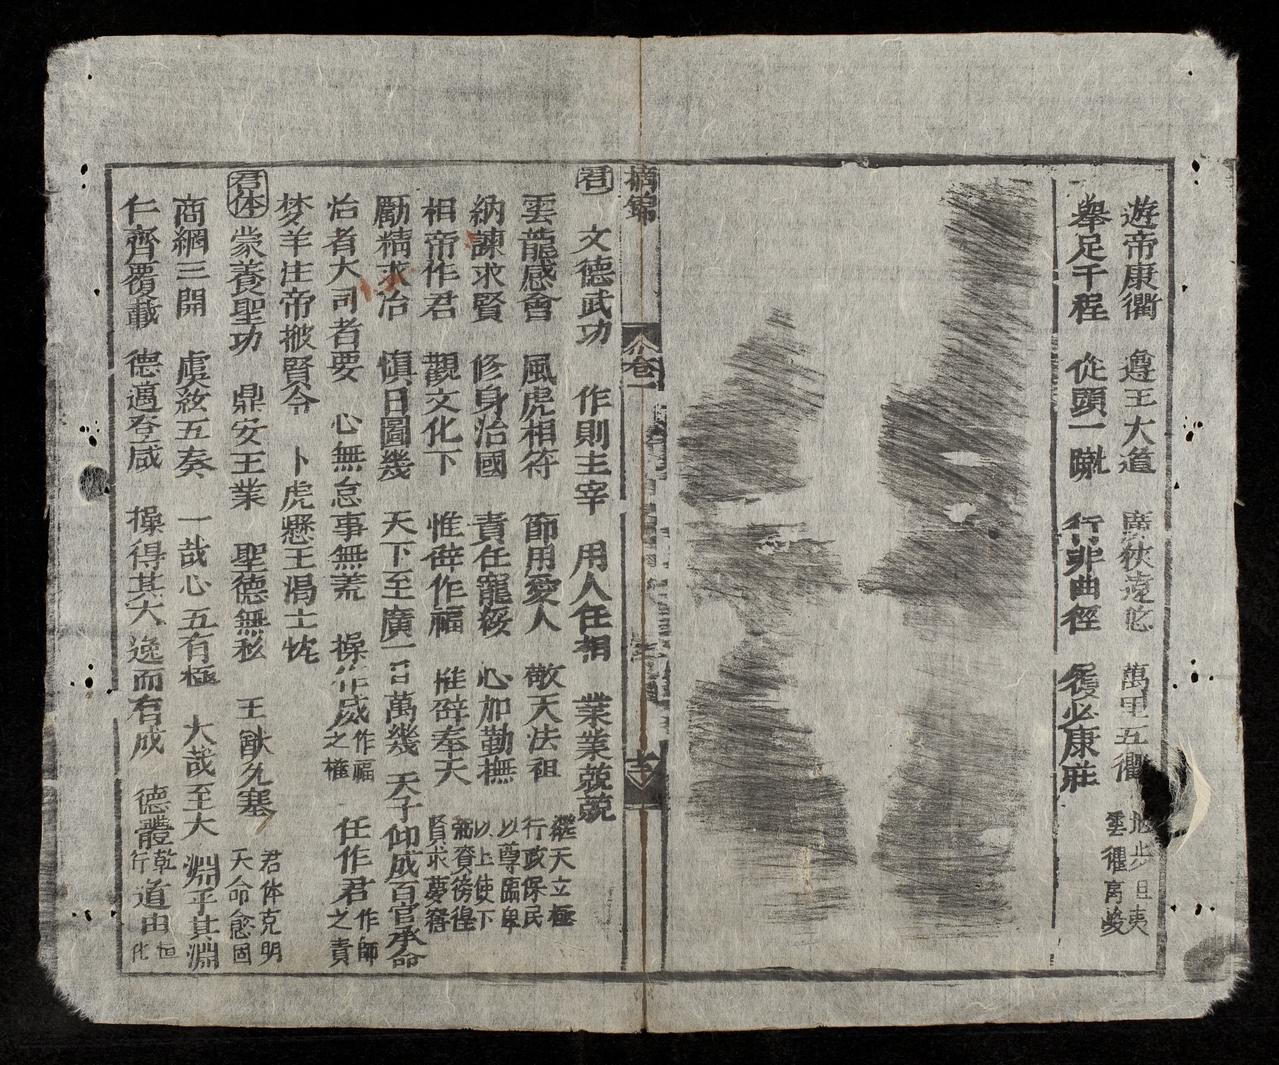 遊帝康衢 遵王大道 廣狹遠悠 萬里五衢 地步坦夷
雲衢高峻
舉足千程 從頭一蹴 行非曲徑 履必康莊
摘錦
卷一
君 文德武功 作則主宰 用人任相 業業兢兢
雲龍感會 風虎相符 節用愛人 敬天法祖 繼天立極
行政保民
納諫求賢 修身治國 責任寵綏 心加勤撫 以尊臨卑
以上使下
相帝作君 觀文化下 惟辟作福 惟辟奉天 弼賚徬徨
賢求夢寤
勵精求治 慎日圖幾 天下至廣一日萬幾 天子仰成百官承命
治者大司者要 心無怠事無荒 操作威之權 作福 任作君之責 作師
梦羊注帝掀賢令 卜虎懸王渴士忱
君体 蒙養聖功 鼎安王業 聖德無私 王猷允塞 君体克明
天命愈固
商網三開 虞絃五奏 一哉心五有極 大哉至大 淵乎其淵
仁齊覆載 德邁登咸 操得其大逸而有成 德體乾行 道由恒化